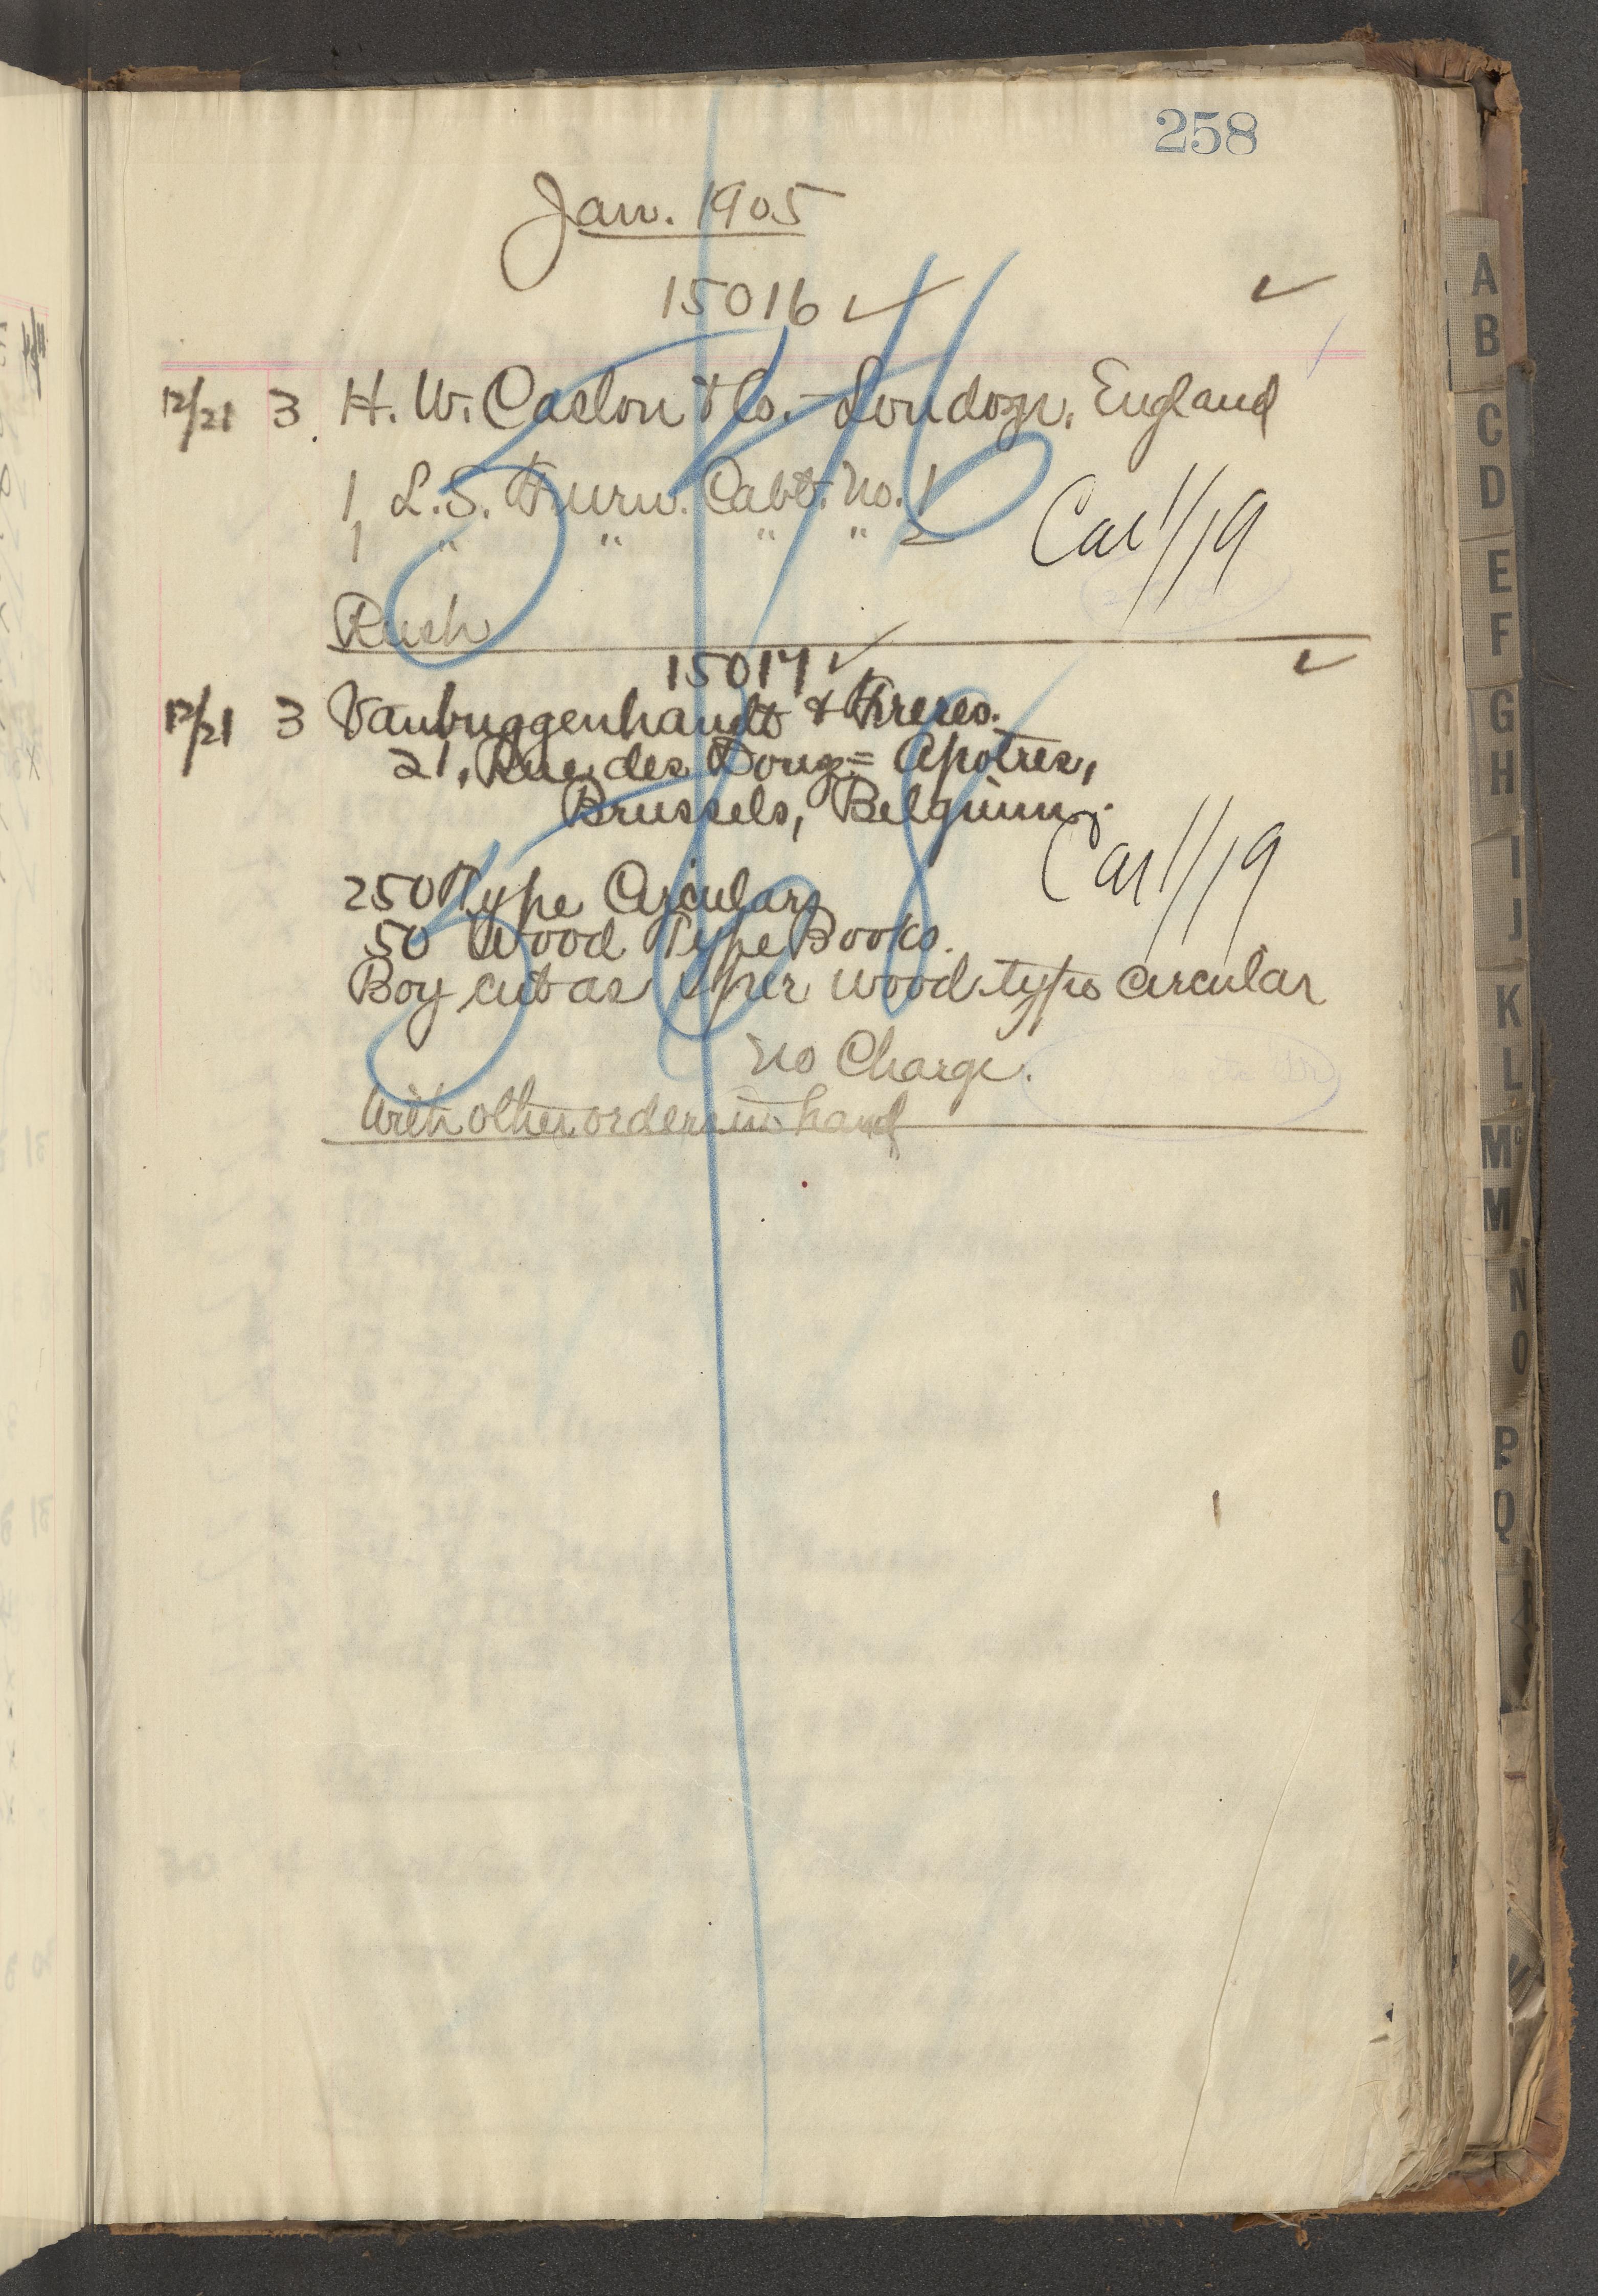 258
Jan. 1905
15016 ✓ ✓
12/21 3 H. W. Caslon & Co. - London, England
1 L.S. Furn. Cabt. No. 1
1 " " " " 2
Car 1/19
Rush
15017 ✓ ✓
12/21 3 Vanbuggenhaudt & Freres.
21, Rue des Douze = Apotres,
Brussels, Belgium.
Car 1/19
250 Type Circulars
50 Wood Type Books.
Boy cut as per wood type circular
No Charge.
With other orders in hand
A
B
C
D
E
F
G
H
I
J
K
L
Mc
M
N
O
P
Q